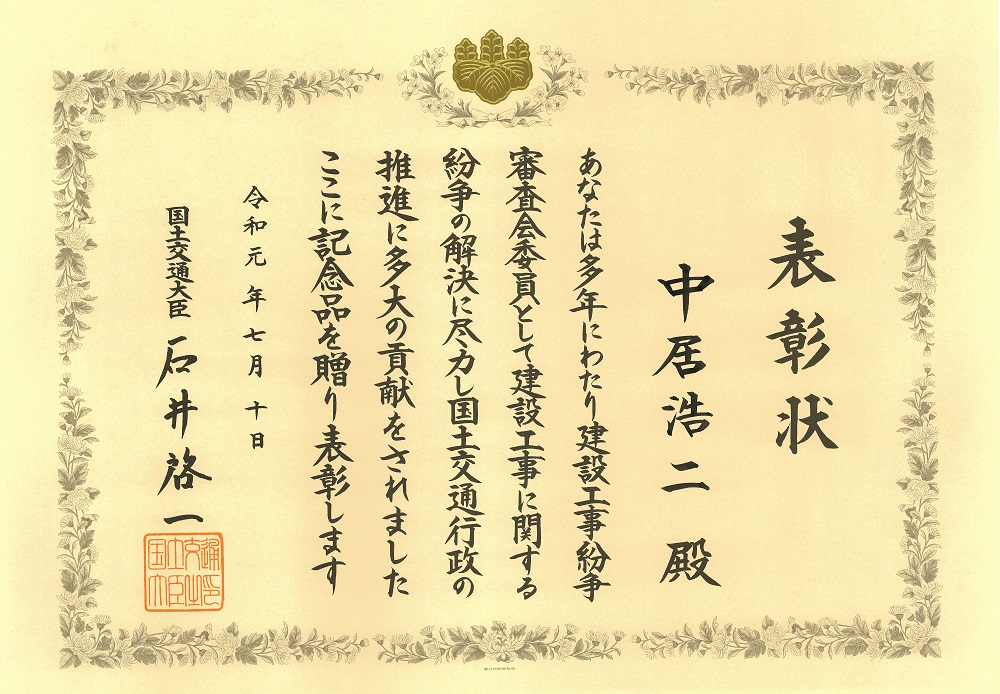 表彰状
中居浩二殿
あなたは多年にわたり建設工事紛争
審査会委員として建設工事に関する
紛争の解決に尽力し国土交通行政の
推進に多大の貢献をされました
ここに記念品を贈り表彰します
令和元年七月十日
国土交通大臣 石井啓一
国土交通大臣之印